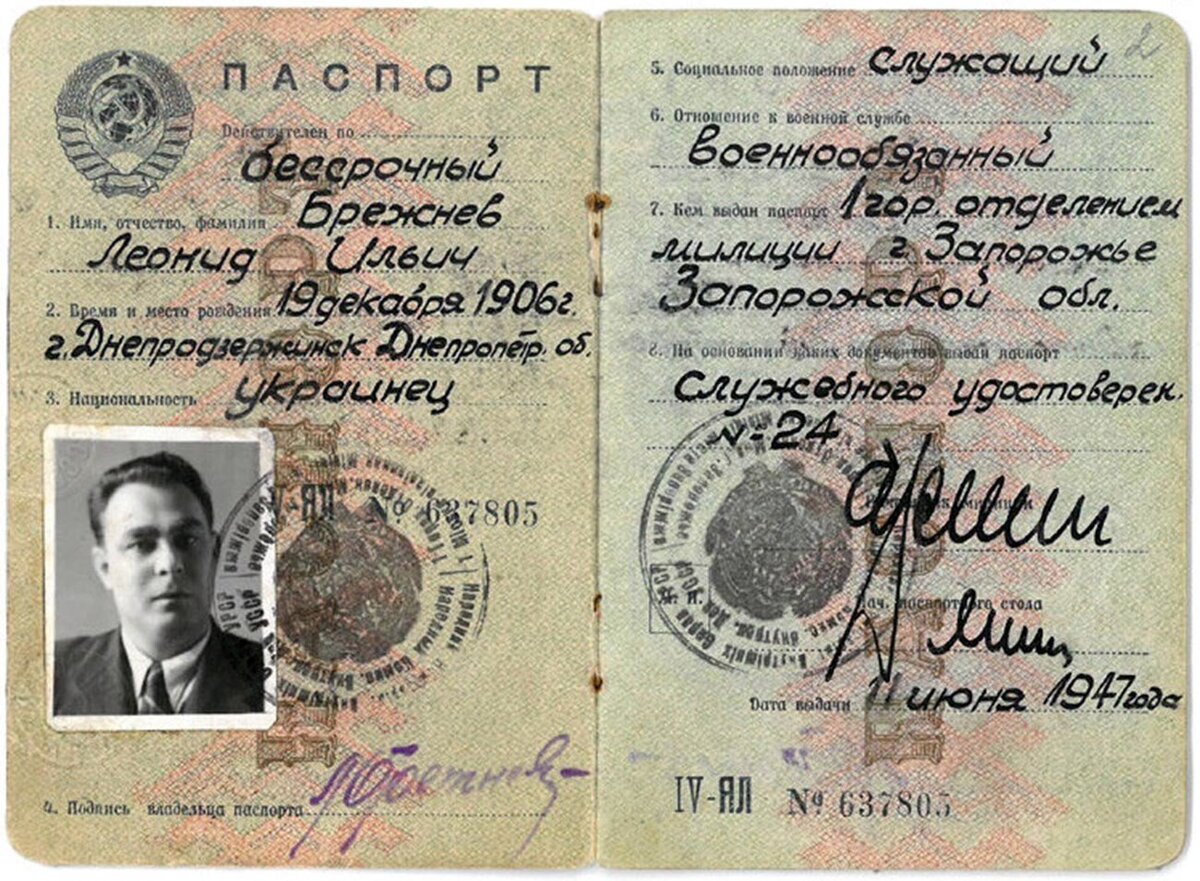 ПАСПОРТ
Действителен по
бессрочный
1. Имя, отчество, фамилия Брежнев
Леонид Ильич
2. Время и место рождения 19 декабря 1906г.
г. Днепродзержинск Днепропетр. об.
3. Национальность украинец
IV-ЯЛ № 637805
4. Подпись владельца паспорта
2
5. Социальное положение служащий
6. Отношение к военной службе
Военнообязанный
7. Кем выдан паспорт 1 гор. отделением
милиции г. Запорожье
Запорожской обл.
8. На основании каких документов выдан паспорт
служебного удостоверен.
№-24
М. П.
Нач. паспортного стола
Дата выдачи 11 июня 1947 года
IV-ЯЛ № 637805